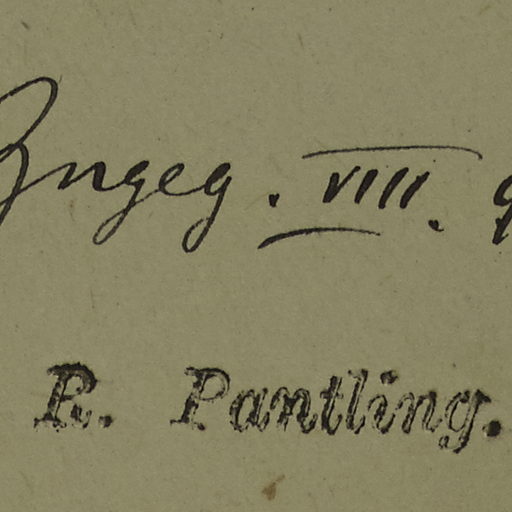 Zngeg. VIII. 9
R. Pantling.